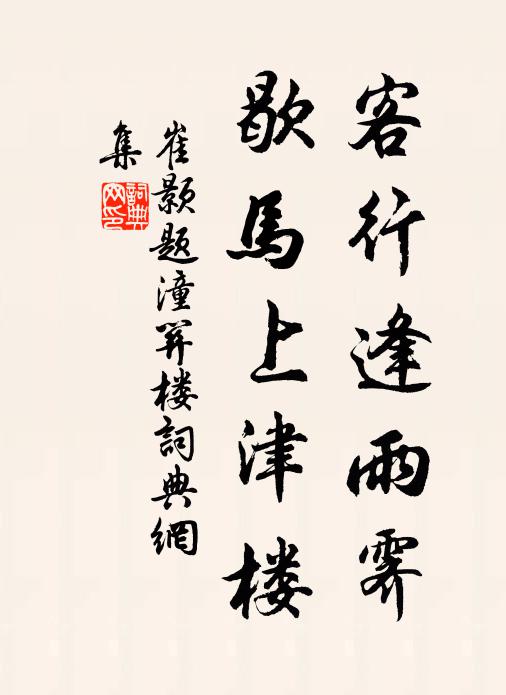 客行逢雨霁
歇馬上津楼
崔颢题潼关楼詞典網
集
詞典
网印